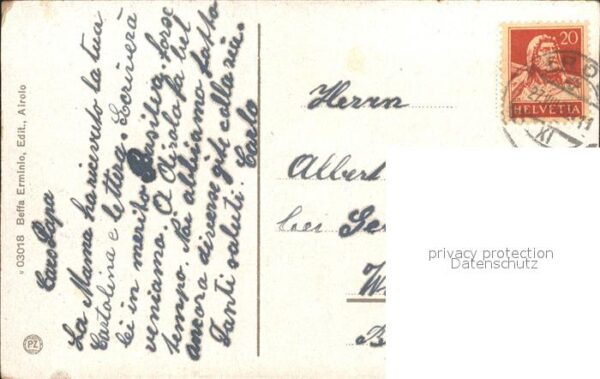 Caro Papa
La Mama ha ricevuto la tua
Cartolina e lettera. Scriverà
lei in merito Basilea, forse
veniamo. A Airolo fa bel
tempo. Noi abbiamo fatto
ancora diverse gite colla zia.
Tanti saluti. Carlo
v 03018 Beffa Erminio, Edit., Airolo
PZ
20
HELVETIA
XI
Herrn
Albert
bei
W
B
privacy protection
Datenschutz